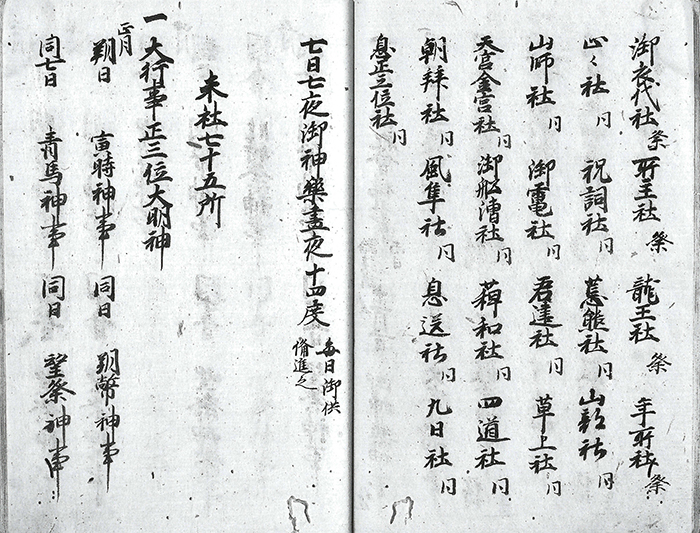 御衣代社 祭 所王社 祭 龍王社 祭 年所社 祭
山々社 同 祝詞社 同 熊社 同 山社 同
山師社 同 御電社 同 君達社 同 草上社 同
天宮金宮社 同 御舩漕社 同 和社 同 四道社 同
朝拜社 同 風隼社 同 息送社 同 九日社 同
息正三位社 同
七日七夜御神樂晝夜十四度 毎日御供
備進之
末社七十五所
一大行事正三位大明神
正月
朔日 寅時神事 同日 朔幣神事
同七日 青馬神事 同日 望祭神事